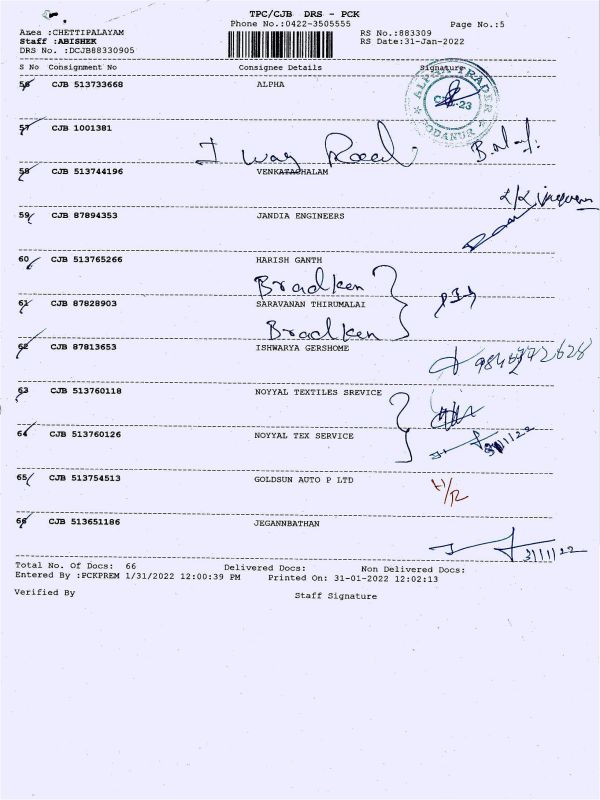 TPC/CJB DRS - PCK
Phone No.:0422-3505555 Page No.:5
Area :CHETTIPALAYAM RS No.:883309
Staff :ABISHEK RS Date:31-Jan-2022
DRS No. :DCJB88330905
S No Consignment No Consignee Details Signature
56 CJB 513733668 ALPHA
ALPHA TRADER
CBE-23
PODANUR
57 CJB 1001381
I way Road
58 CJB 513744196 VENKATACHALAM
59 CJB 87894353 JANDIA ENGINEERS
60 CJB 513765266 HARISH GANTH
Bradken
61 CJB 87828903 SARAVANAN THIRUMALAI
Bradken
62 CJB 87813653 ISHWARYA GERSHOME
63 CJB 513760118 NOYYAL TEXTILES SREVICE
64 CJB 513760126 NOYYAL TEX SERVICE
31/1/22
65 CJB 513754513 GOLDSUN AUTO P LTD
66 CJB 513651186 JEGANNBATHAN
31/1/22
Total No. Of Docs: 66 Delivered Docs: Non Delivered Docs:
Entered By :PCKPREM 1/31/2022 12:00:39 PM Printed On: 31-01-2022 12:02:13
Verified By Staff Signature